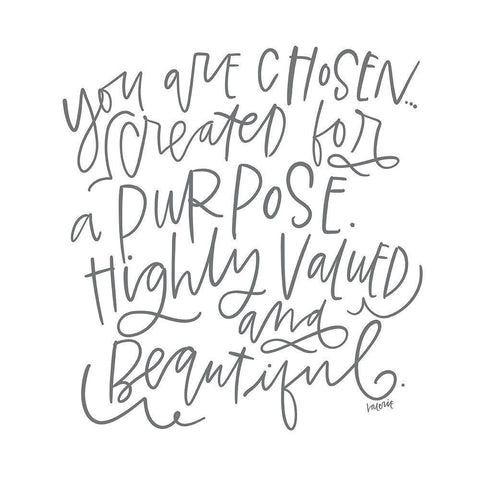 you are CHOSEN...
created for
a PURPOSE.
Highly Valued
and
Beautiful.
Valerie